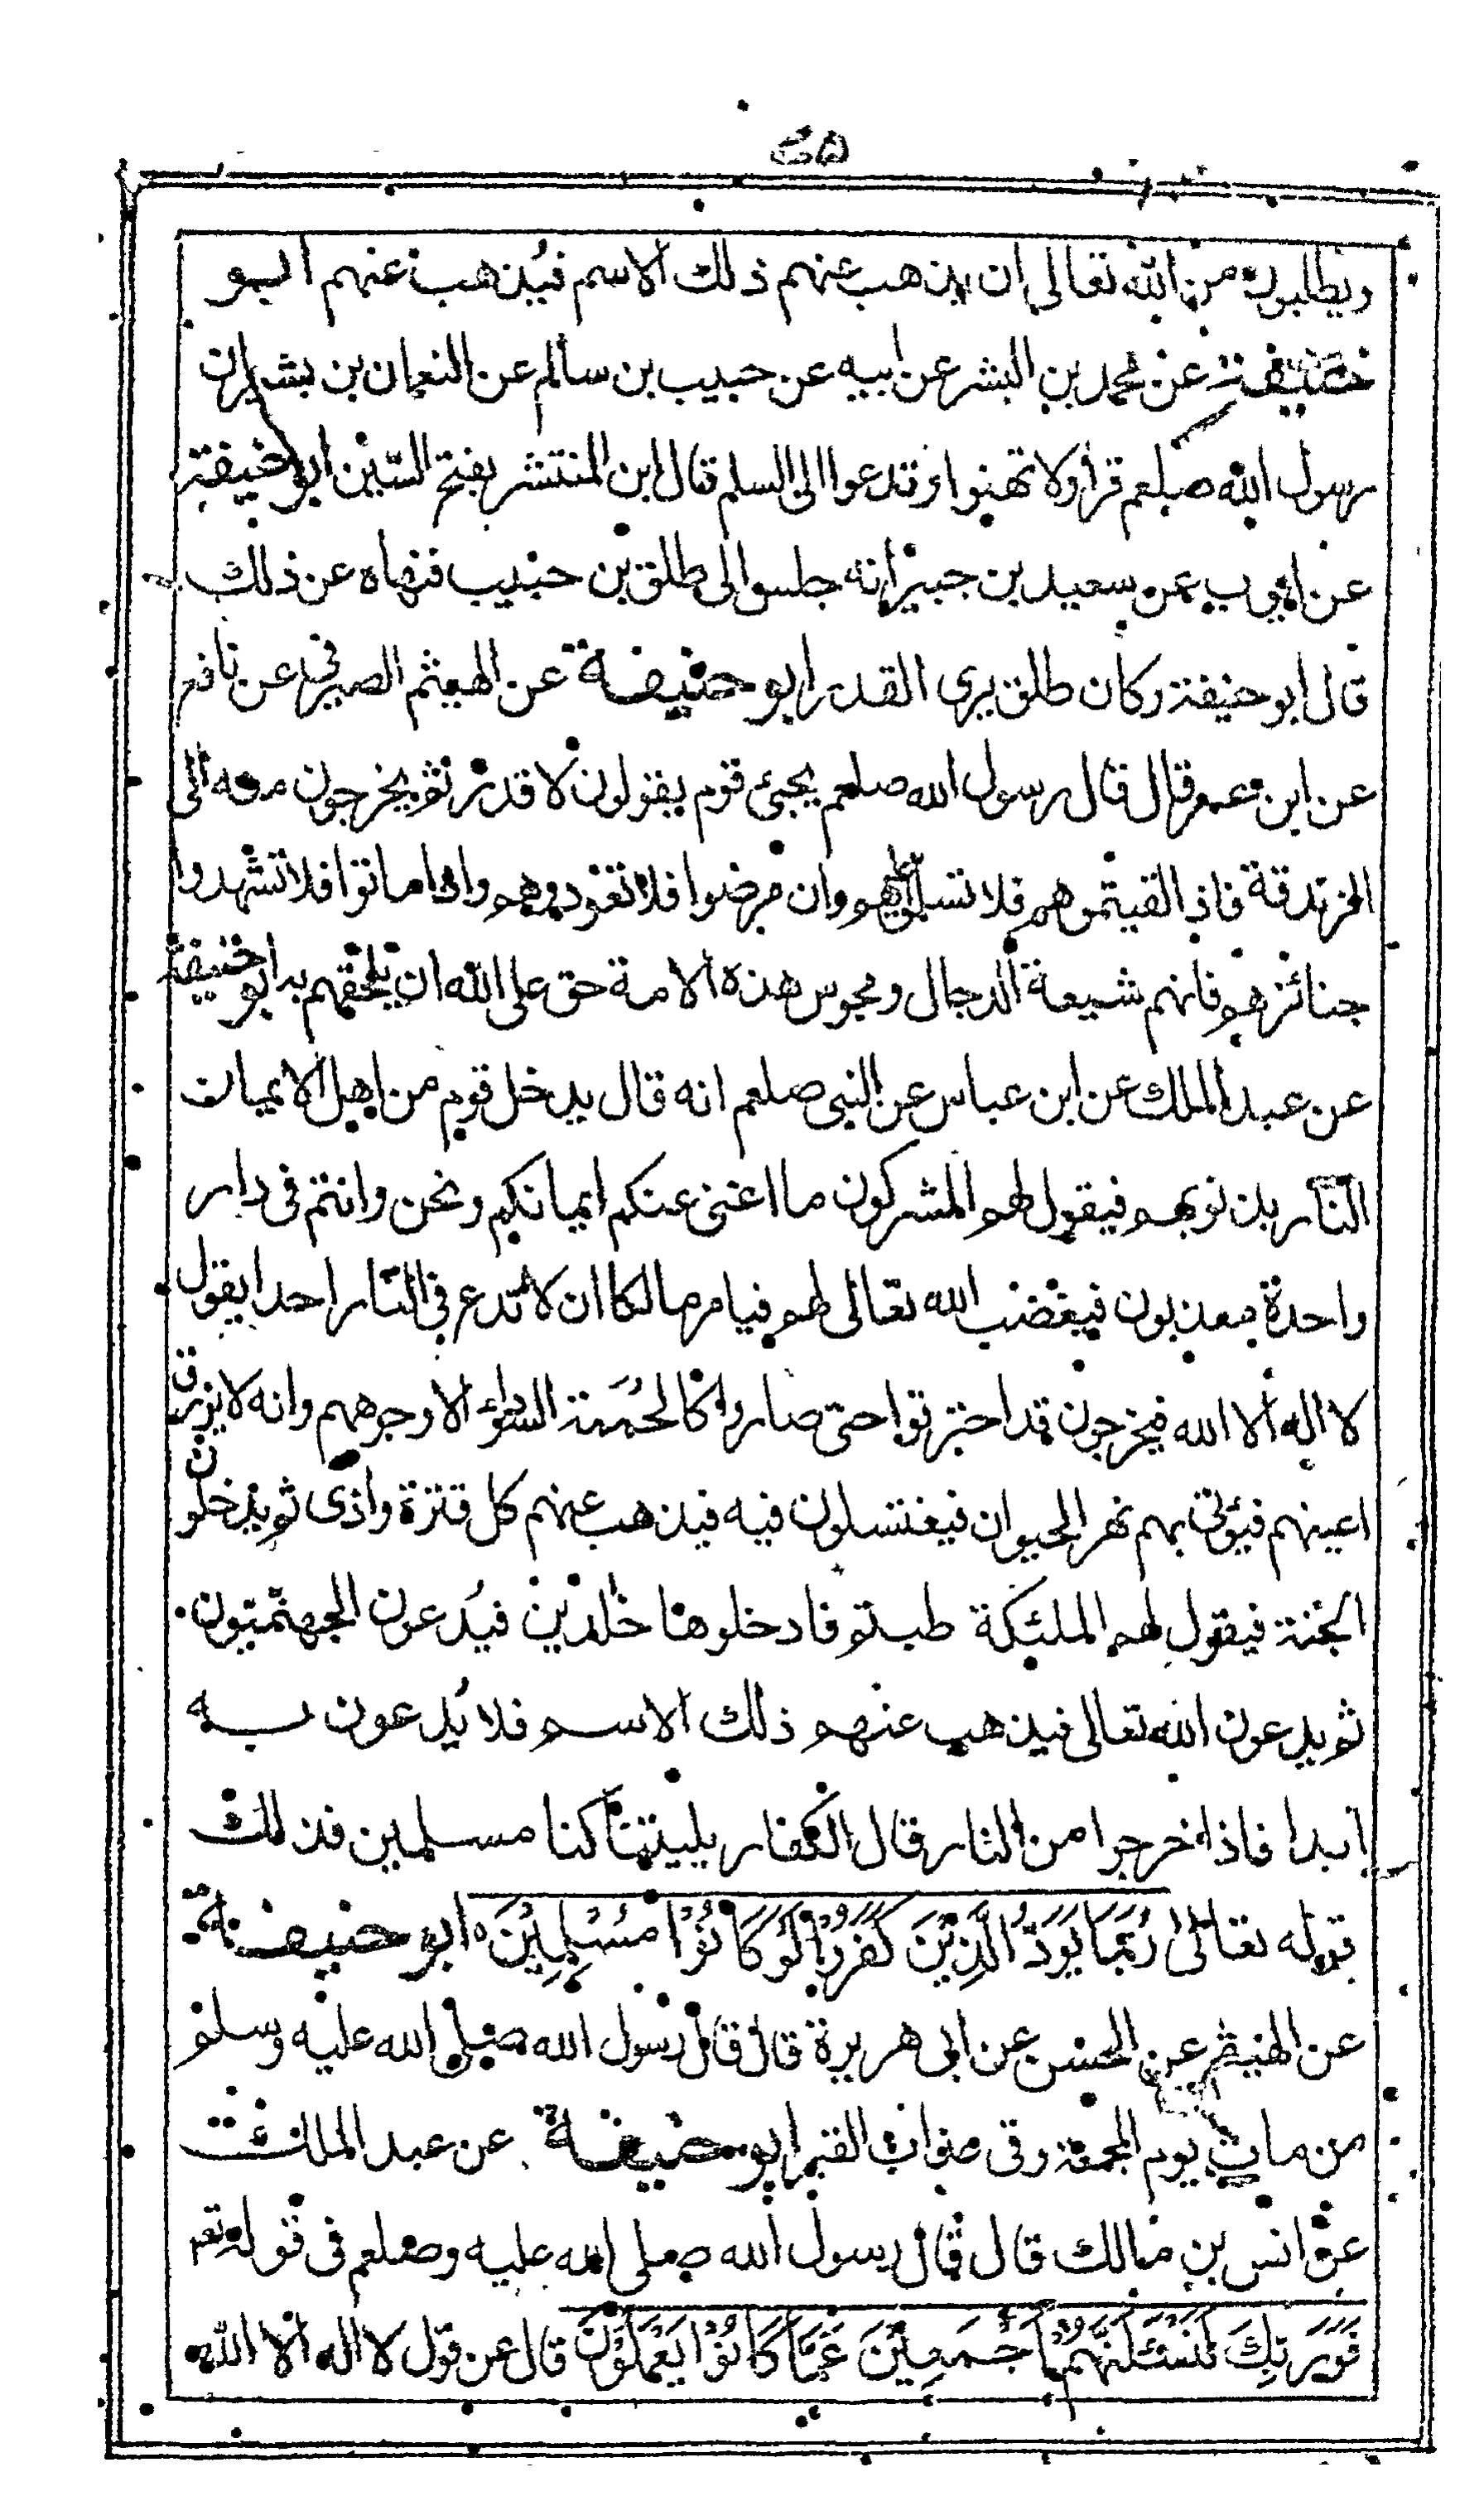 ويطلبون من الله تعالى ان يذهب عنهم ذلك الاسم فيُذهب عنهم ابو
حنيفة عن محمد بن البشر عن ابيه عن حبيب بن سالم عن النعمان بن بشير ان
رسول الله صلعم قرأ ولا تهنوا وتدعوا الى السلم قال ابن المنتشر بفتح السّين ابو حنيفة
عن ايوب عن سعيد بن جبير انه جلسوا الى طلق بن حبيب فنهاه عن ذلك
قال ابو حنيفة وكان طلق يرى القدر ابو حنيفة عن الهيثم الصيرفى عن نافع
عن ابن عمر قال قال رسول الله صلعم يجيئ قوم يقولون لا قدر ثم يخرجون منه الى
الزندقة فاذا لقيتموهم فلا تسلموا عليهم وان مرضوا فلا تعودوهم وان ماتوا فلا تشهدوا
جنائزهم فانهم شيعة الدجال ومجوس هذه الامة حق على الله ان يلحقهم به ابو حنيفة
عن عبد الملك عن ابن عباس عن النبى صلعم انه قال يدخل قوم من اهل الايمان
النّار بذنوبهم فيقول لهم المشركون ما اغنى عنكم ايمانكم ونحن وانتم فى دار
واحدة معذبون فيغضب الله تعالى لهم فيامر مالكا ان لا تدع فى النّار احدا يقول
لا اله الا الله فيخرجون قد احترقوا حتى صاروا كالحُمَمة السّوداء الا وجوههم وانه لا يزرق
اعينهم فيؤتى بهم نهر الحيوان فيغتسلون فيه فيذهب عنهم كل قترة واذى ثم يدخلون
الجنة فيقول لهم الملئكة طبتم فادخلوها خلدين فيُدعون الجهنّميّون
ثم يدعون الله تعالى فيذهب عنهم ذلك الاسم فلا يُدعون به
ابدا فاذا خرجوا من النار قال الكفار يليتنا كنا مسلمين فذلك
قوله تعالىٰ رُبَمَا يَوَدُّ الَّذِيْنَ كَفَرُوْا لَوْ كَانُوْا مُسْلِمِيْنَ ه ابو حنيفة
عن الهيثم عن الحسن عن ابى هريرة قال قال رسول الله صلى الله عليه وسلم
من مات يوم الجمعة وقى عذاب القبر ابو حنيفة عن عبد الملك
عن انس بن مالك قال قال رسول الله صلى الله عليه وصلعم فى قوله تع
فَوَرَبِّكَ لَنَسْئَلَنَّهُمْ اَجْمَعِيْنَ عَمَّا كَانُوْا يَعْمَلُوْنَ قال عن قول لا اله الا الله